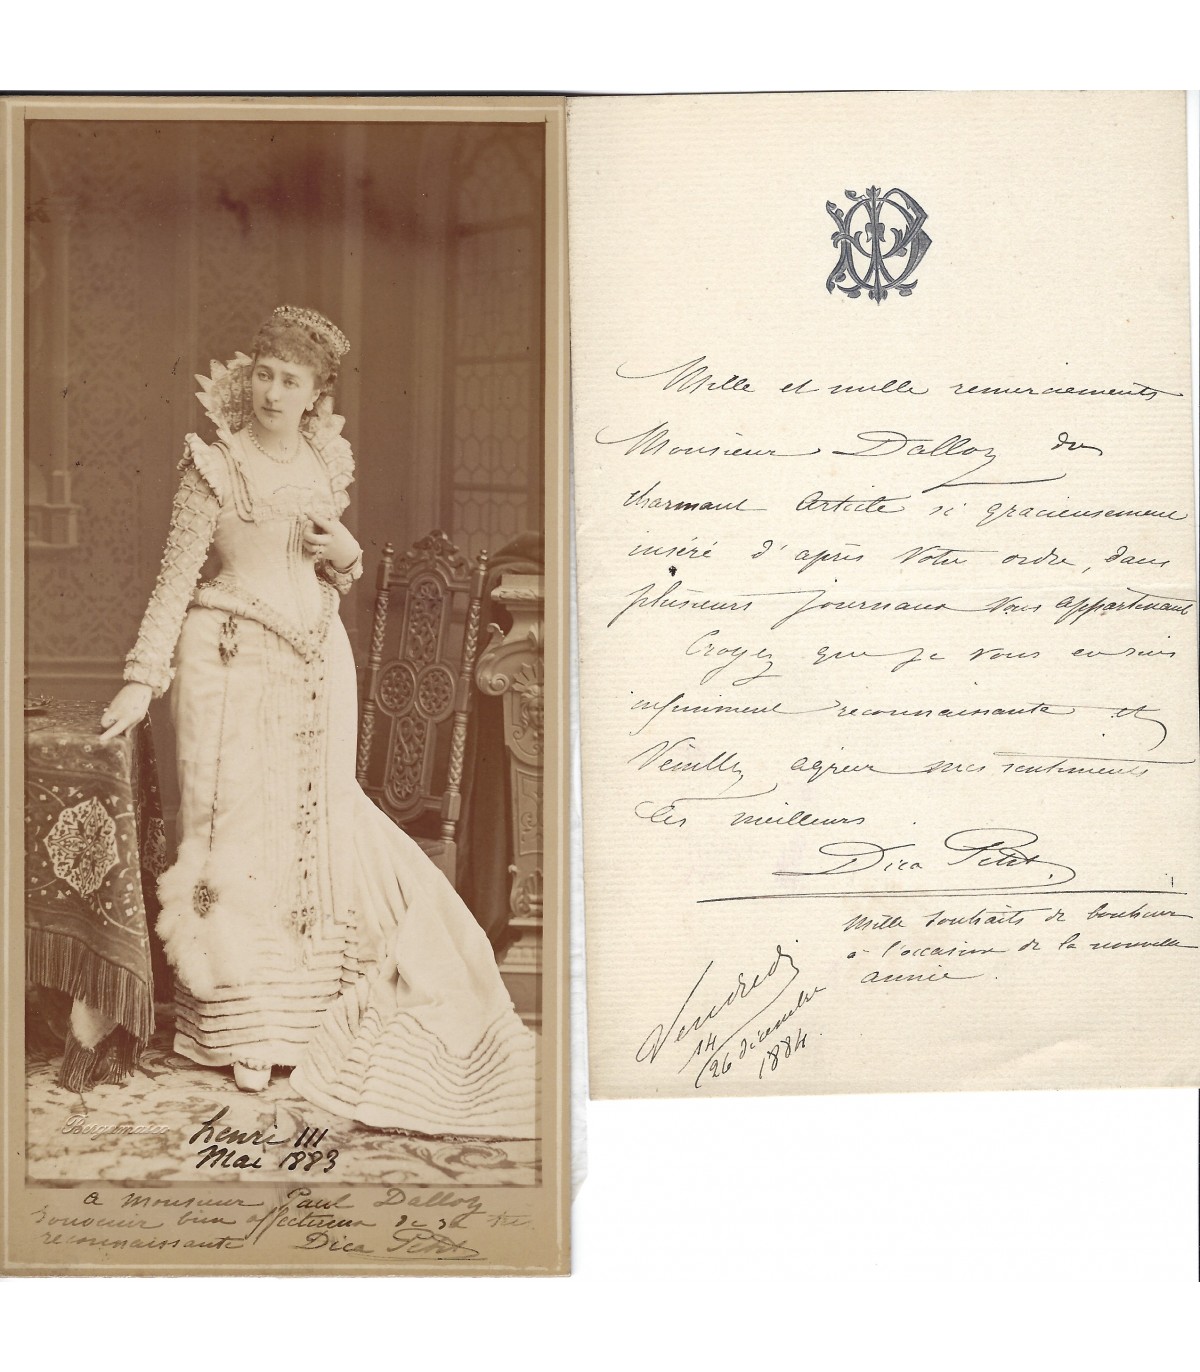 Bergamasco
henri III
Mai 1883
A Monsieur Paul Dalloz
Souvenir bien affectueux de sa très
reconnaissante Dica Petit
Mille et mille remerciements
Monsieur Dalloz du
charmant Article si gracieusement
inséré d'après votre ordre, dans
plusieurs journaux vous appartenant
Croyez que je vous en suis
infiniment reconnaissante et
Veuillez agréer mes sentiments
les meilleurs.
Dica Petit
Mille souhaits de bonheur
à l'occasion de la nouvelle
année.
Vendredi
14
/26 décembre
1884.